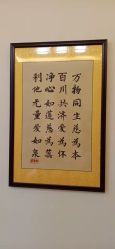 万物同生慈为本
百川共济爱为怀
净心如莲慈为蕊
利他无量爱如泉